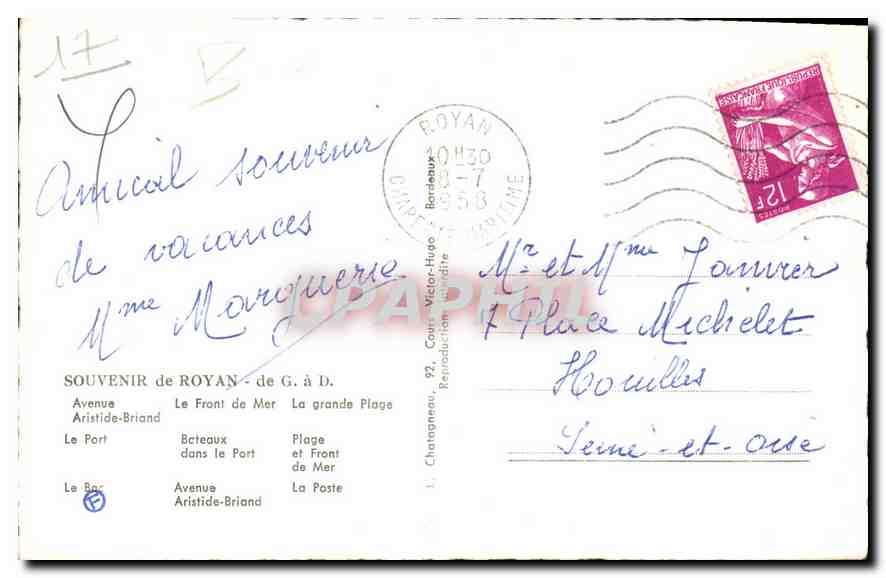 17
B
Amical souvenir
de vacances
Mme Marquerie
SOUVENIR de ROYAN - de G. à D.
Avenue Aristide-Briand
Le Front de Mer
La grande Plage
Le Port
Bateaux dans le Port
Plage et Front de Mer
Le Bac
Avenue Aristide-Briand
La Poste
F
Chatagneau, 92, Cours Victor-Hugo Bordeaux
Reproduction interdite
ROYAN
10H30
8-7
1958
CHARENTE MARITIME
REPUBLIQUE FRANÇAISE
12F
POSTES
Mr et Mme Janvier
7 Place Michelet
Houilles
Seine-et-oise
LPAPHIL